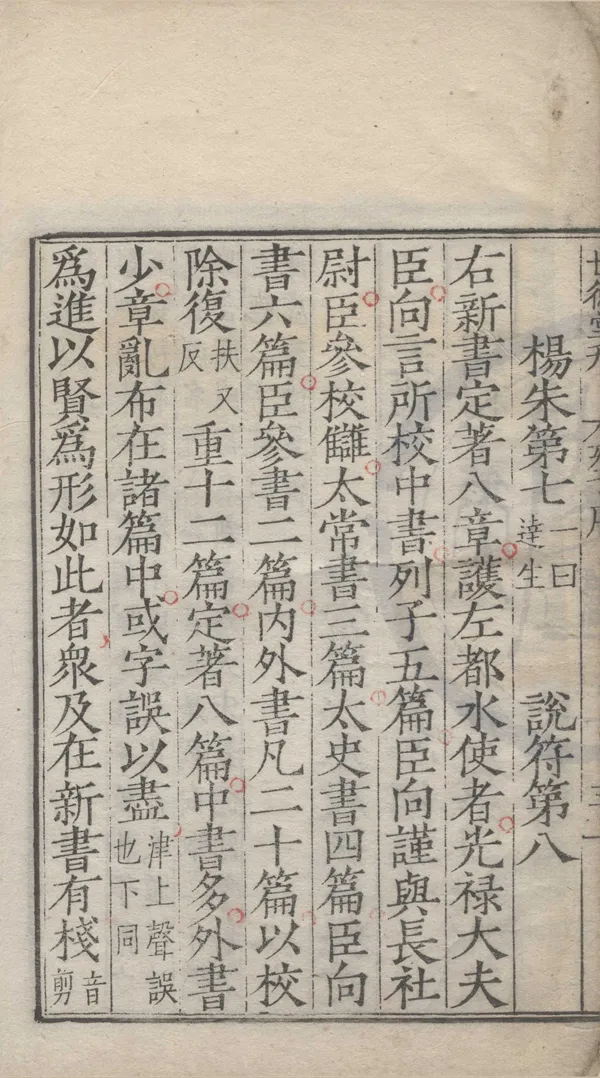 楊朱第七一曰達生 說符第八
右新書定著八章護左都水使者光祿大夫
臣向言所校中書列子五篇臣向謹與長社
尉臣參校讎太常書三篇太史書四篇臣向
書六篇臣參書二篇內外書凡二十篇以校
除復扶又反重十二篇定著八篇中書多外書
少章亂布在諸篇中或字誤以盡津上聲誤也下同
爲進以賢爲形如此者衆及在新書有棧音剪